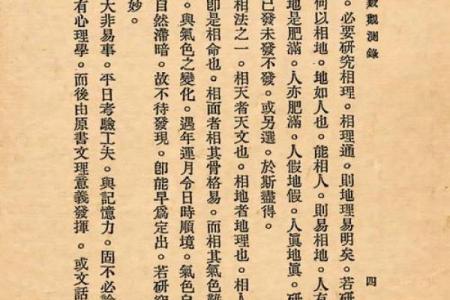 觀測錄 四
。必要研究相理。相理通。則地理易明矣。若研
何以相地。地如人也。能相人。則易相地。人有
地是肥滿。人亦肥滿。人假地假。人眞地眞。研
已發未發不發。或另選。於斯盡得。
相法之一。相天者天文也。相地者地理也。相人
即是相命也。相面者相其骨格易。而相其氣色難
。與氣色之變化。遇年運月令日時順境。氣色自
自然滯暗。故不待發現。即能早爲定出。若研
妙。
大非易事。平日考驗工夫。與記憶力。固不必論
有心理學。而後由原書文理意義發揮。或文話